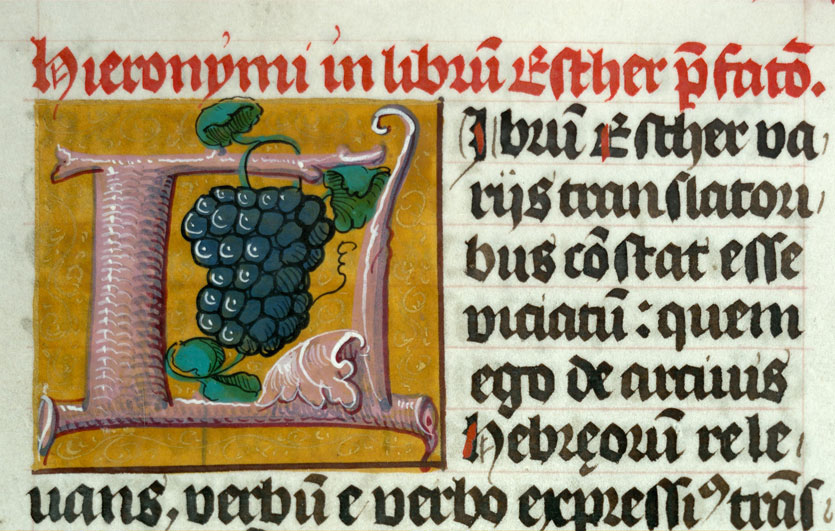 Hieronymi in librū Esther p̄fatō.
L Ibrū Esther va
rijs translatori
bus cōstat esse
viciatū : quem
ego de arciuis
Hebręorū rele
uans, verbū e verbo expressiꝰ trās